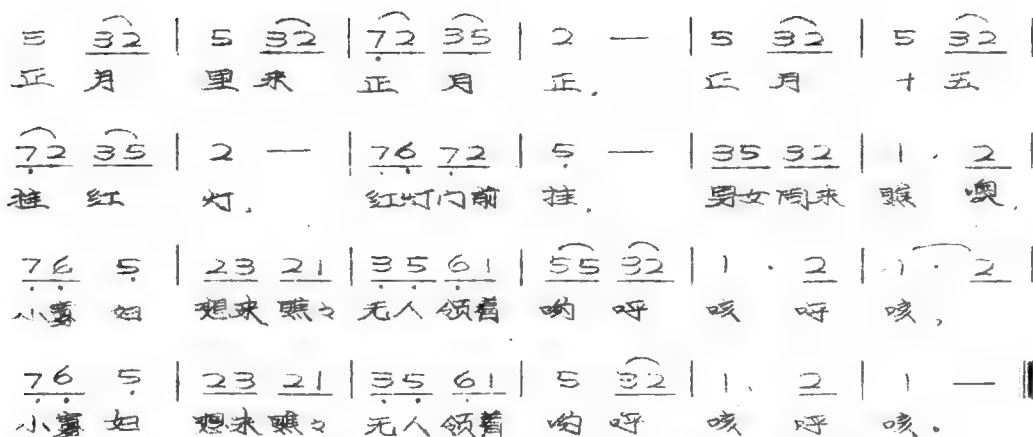 5 32 | 5 32 | 72 35 | 2 — | 5 32 | 5 32 |
正 月 里 来 正 月 正. 正 月 十 五
72 35 | 2 — | 76 72 | 5 — | 35 32 | 1 . 2 |
挂 红 灯, 红灯门前 挂. 男女同来 瞧 噢,
76 5 | 23 21 | 35 61 | 55 32 | 1 . 2 | 1 . 2 |
小寡 妇 想来瞧々 无人领着 哟 呀 咳 呀 咳,
76 5 | 23 21 | 35 61 | 5 32 | 1. 2 | 1 — ‖
小寡 妇 想来瞧々 无人领着 哟 呀 咳 呀 咳.